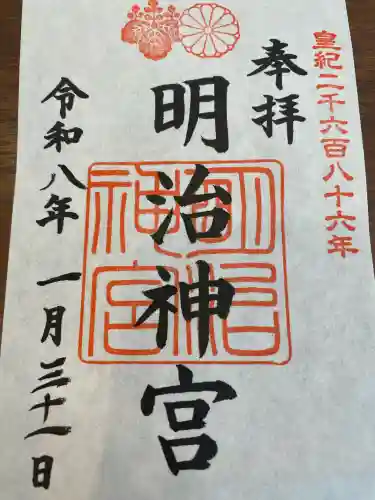 皇紀二千六百八十六年
奉拝
明治神宮
明治神宮
令和八年 一月三十一日